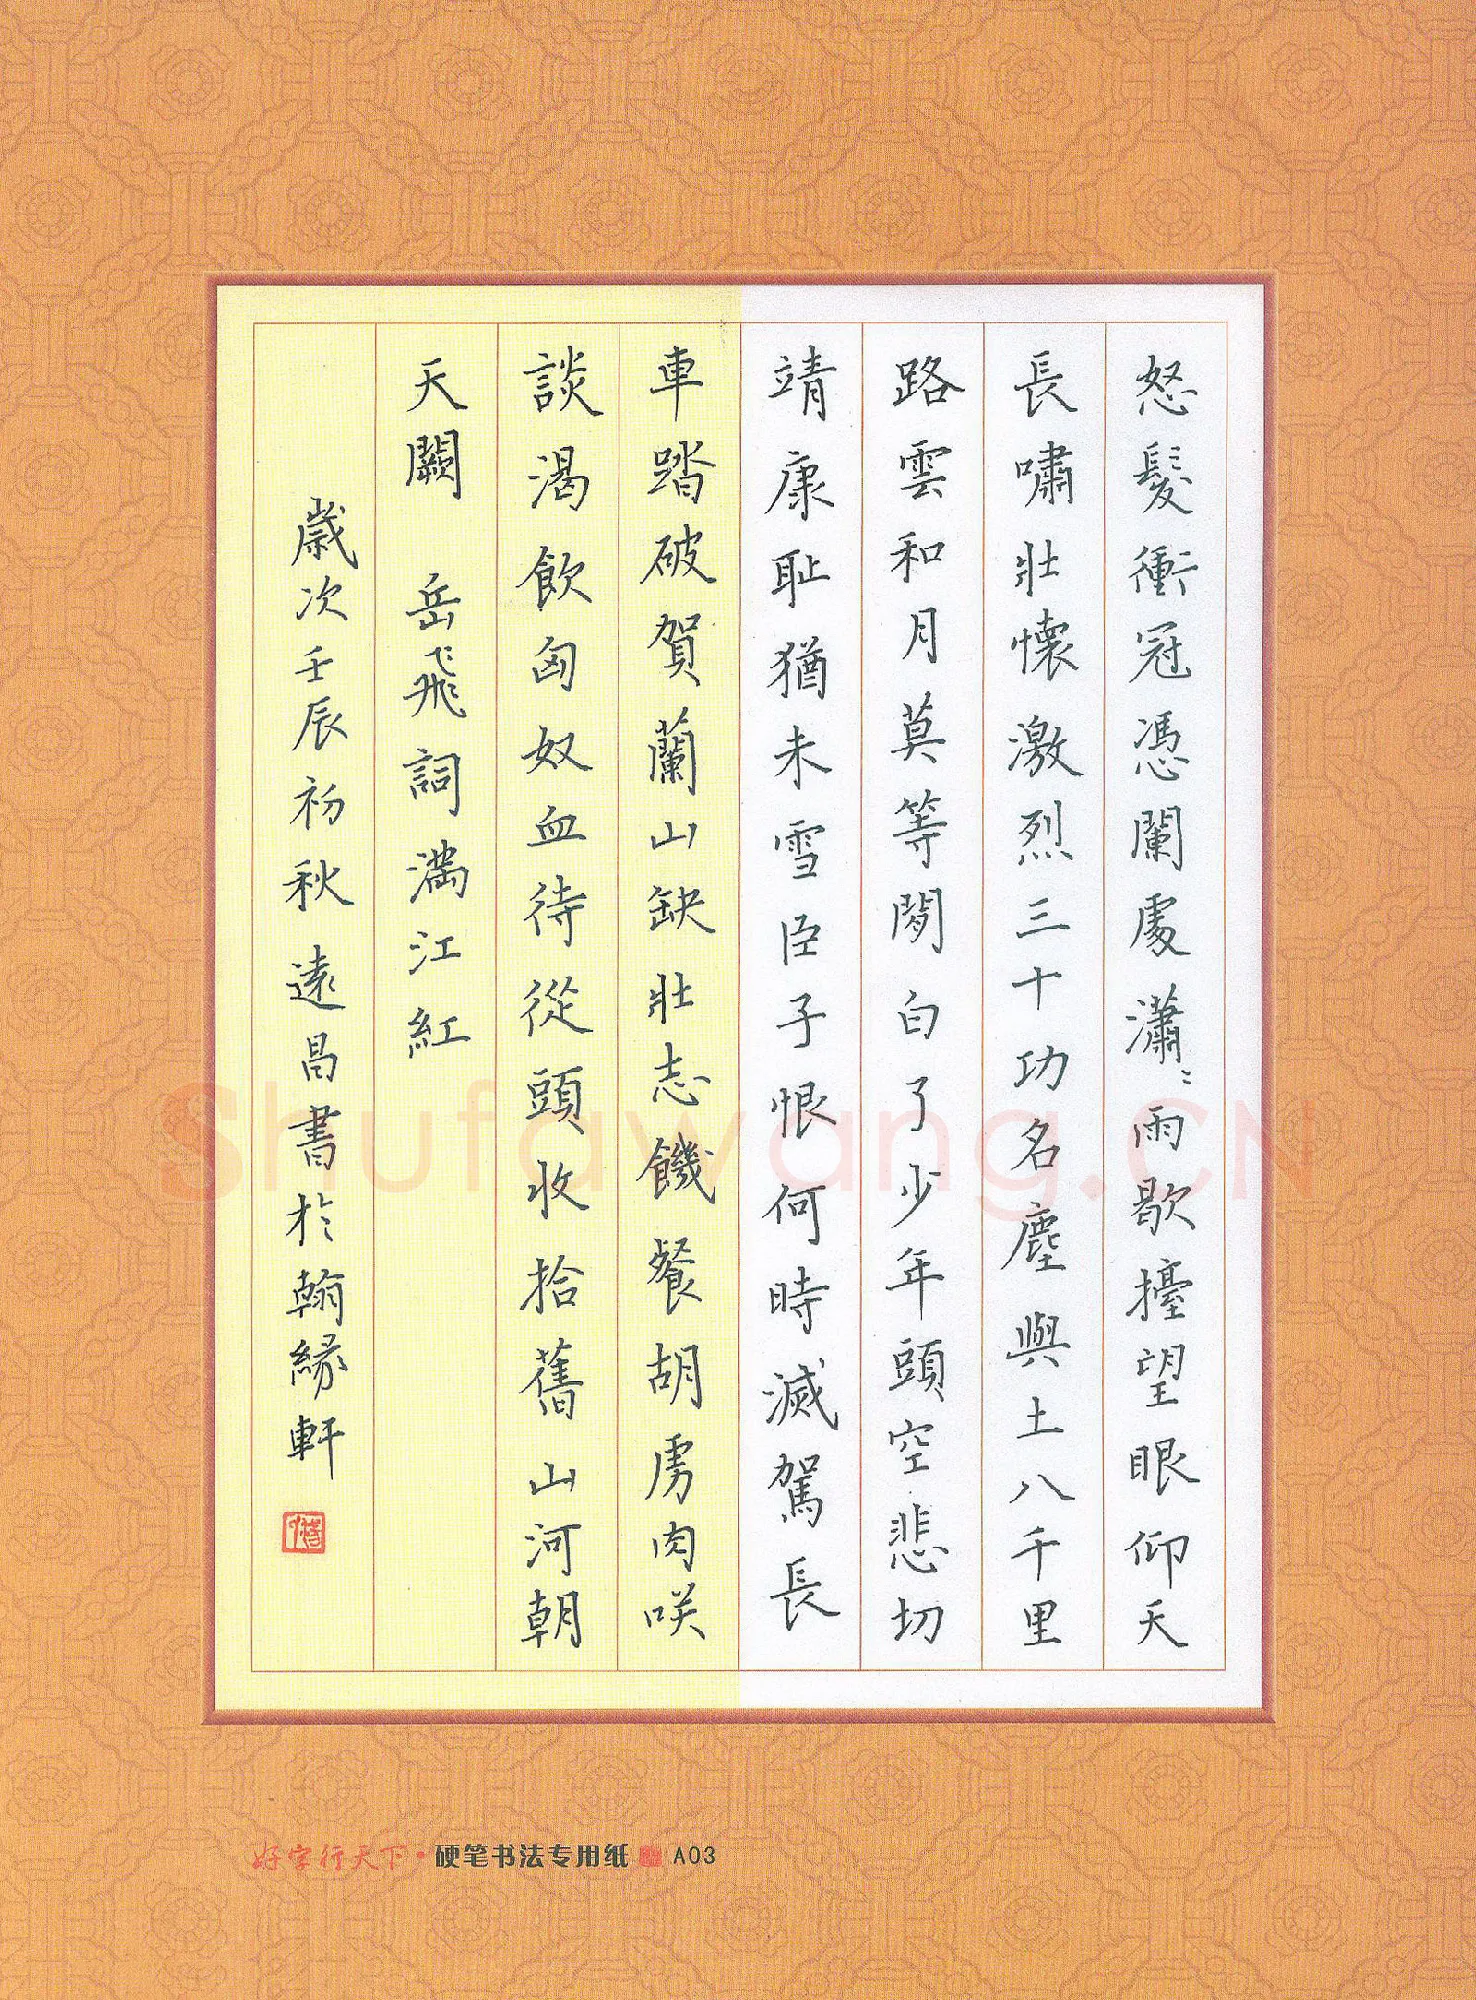 怒髮衝冠憑闌處瀟〻雨歇擡望眼仰天
長嘯壯懷激烈三十功名塵與土八千里
路雲和月莫等閒白了少年頭空悲切
靖康耻猶未雪臣子恨何時滅駕長
車踏破賀蘭山缺壯志饑餐胡虜肉咲
談渴飲匈奴血待從頭收拾舊山河朝
天闕 岳飛詞滿江紅
歲次壬辰初秋遠昌書於翰緣軒
Shufawang.CN
好字行天下·硬笔书法专用纸 A03